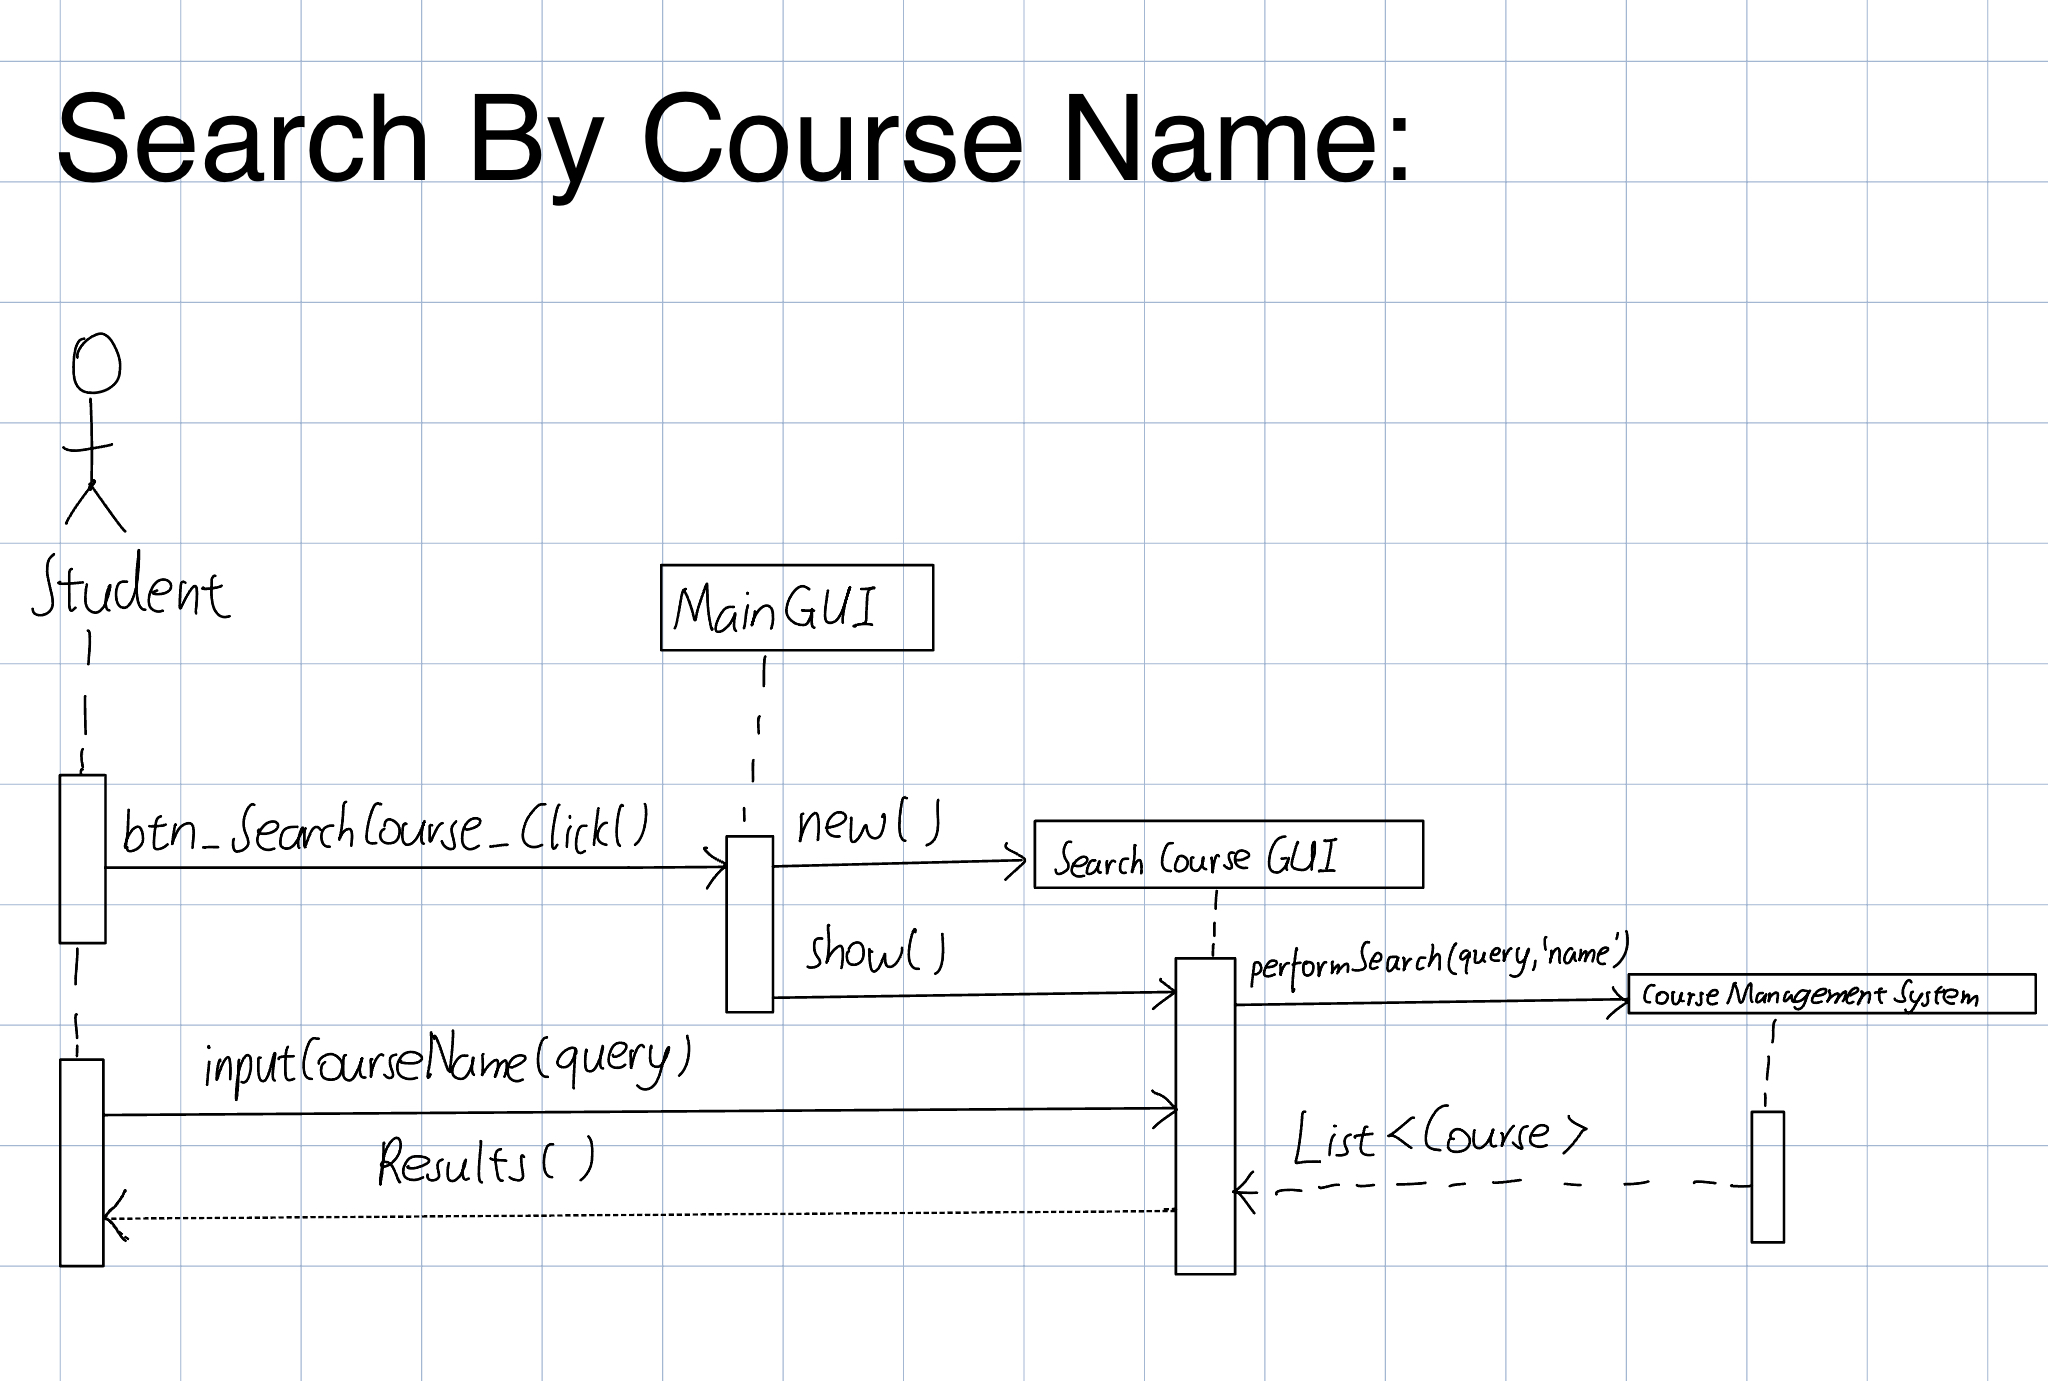 Search By Course Name:
Student
MainGUI
btn_SearchCourse_Click()
new()
Search Course GUI
show()
performSearch(query,'name')
Course Management System
inputCourseName(query)
List<Course>
Results()